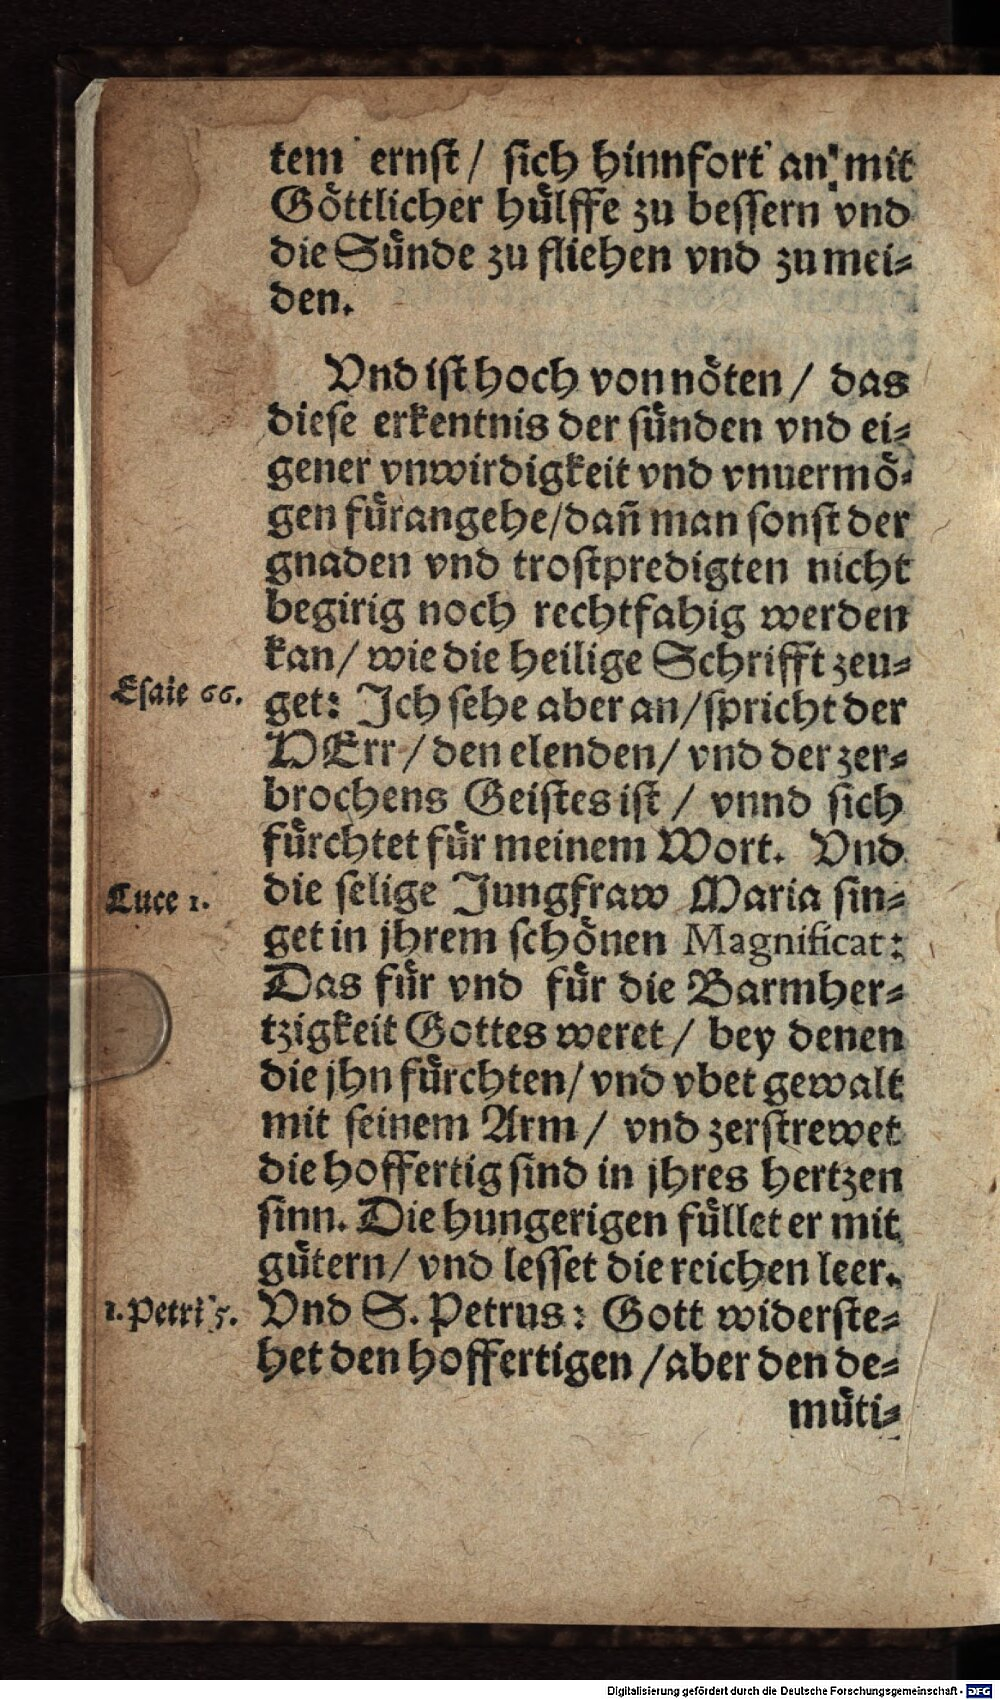 tem ernst / sich hinnfort an mit
Göttlicher hülffe zu bessern vnd
die Sünde zu fliehen vnd zu mei⸗
den.
Vnd ist hoch von nöten / das
diese erkentnis der sünden vnd ei⸗
gener vnwirdigkeit vnd vnuermö⸗
gen fürangehe/dañ man sonst der
gnaden vnd trostpredigten nicht
begirig noch rechtfahig werden
kan/ wie die heilige Schrifft zeu⸗
Esaie 66.
get: Ich sehe aber an/spricht der
HErr / den elenden/ vnd der zer⸗
brochens Geistes ist / vnnd sich
fürchtet für meinem Wort. Vnd
Luce 1.
die selige Jungfraw Maria sin⸗
get in jhrem schönen Magnificat:
Das für vnd für die Barmher⸗
tzigkeit Gottes weret / bey denen
die jhn fürchten/ vnd vbet gewalt
mit seinem Arm / vnd zerstrewet
die hoffertig sind in jhres hertzen
sinn. Die hungerigen füllet er mit
gütern/ vnd lesset die reichen leer.
1. Petri 5.
Vnd S. Petrus: Gott widerste⸗
het den hoffertigen /aber den de⸗
müti⸗
Digitalisierung gefördert durch die Deutsche Forschungsgemeinschaft - DFG